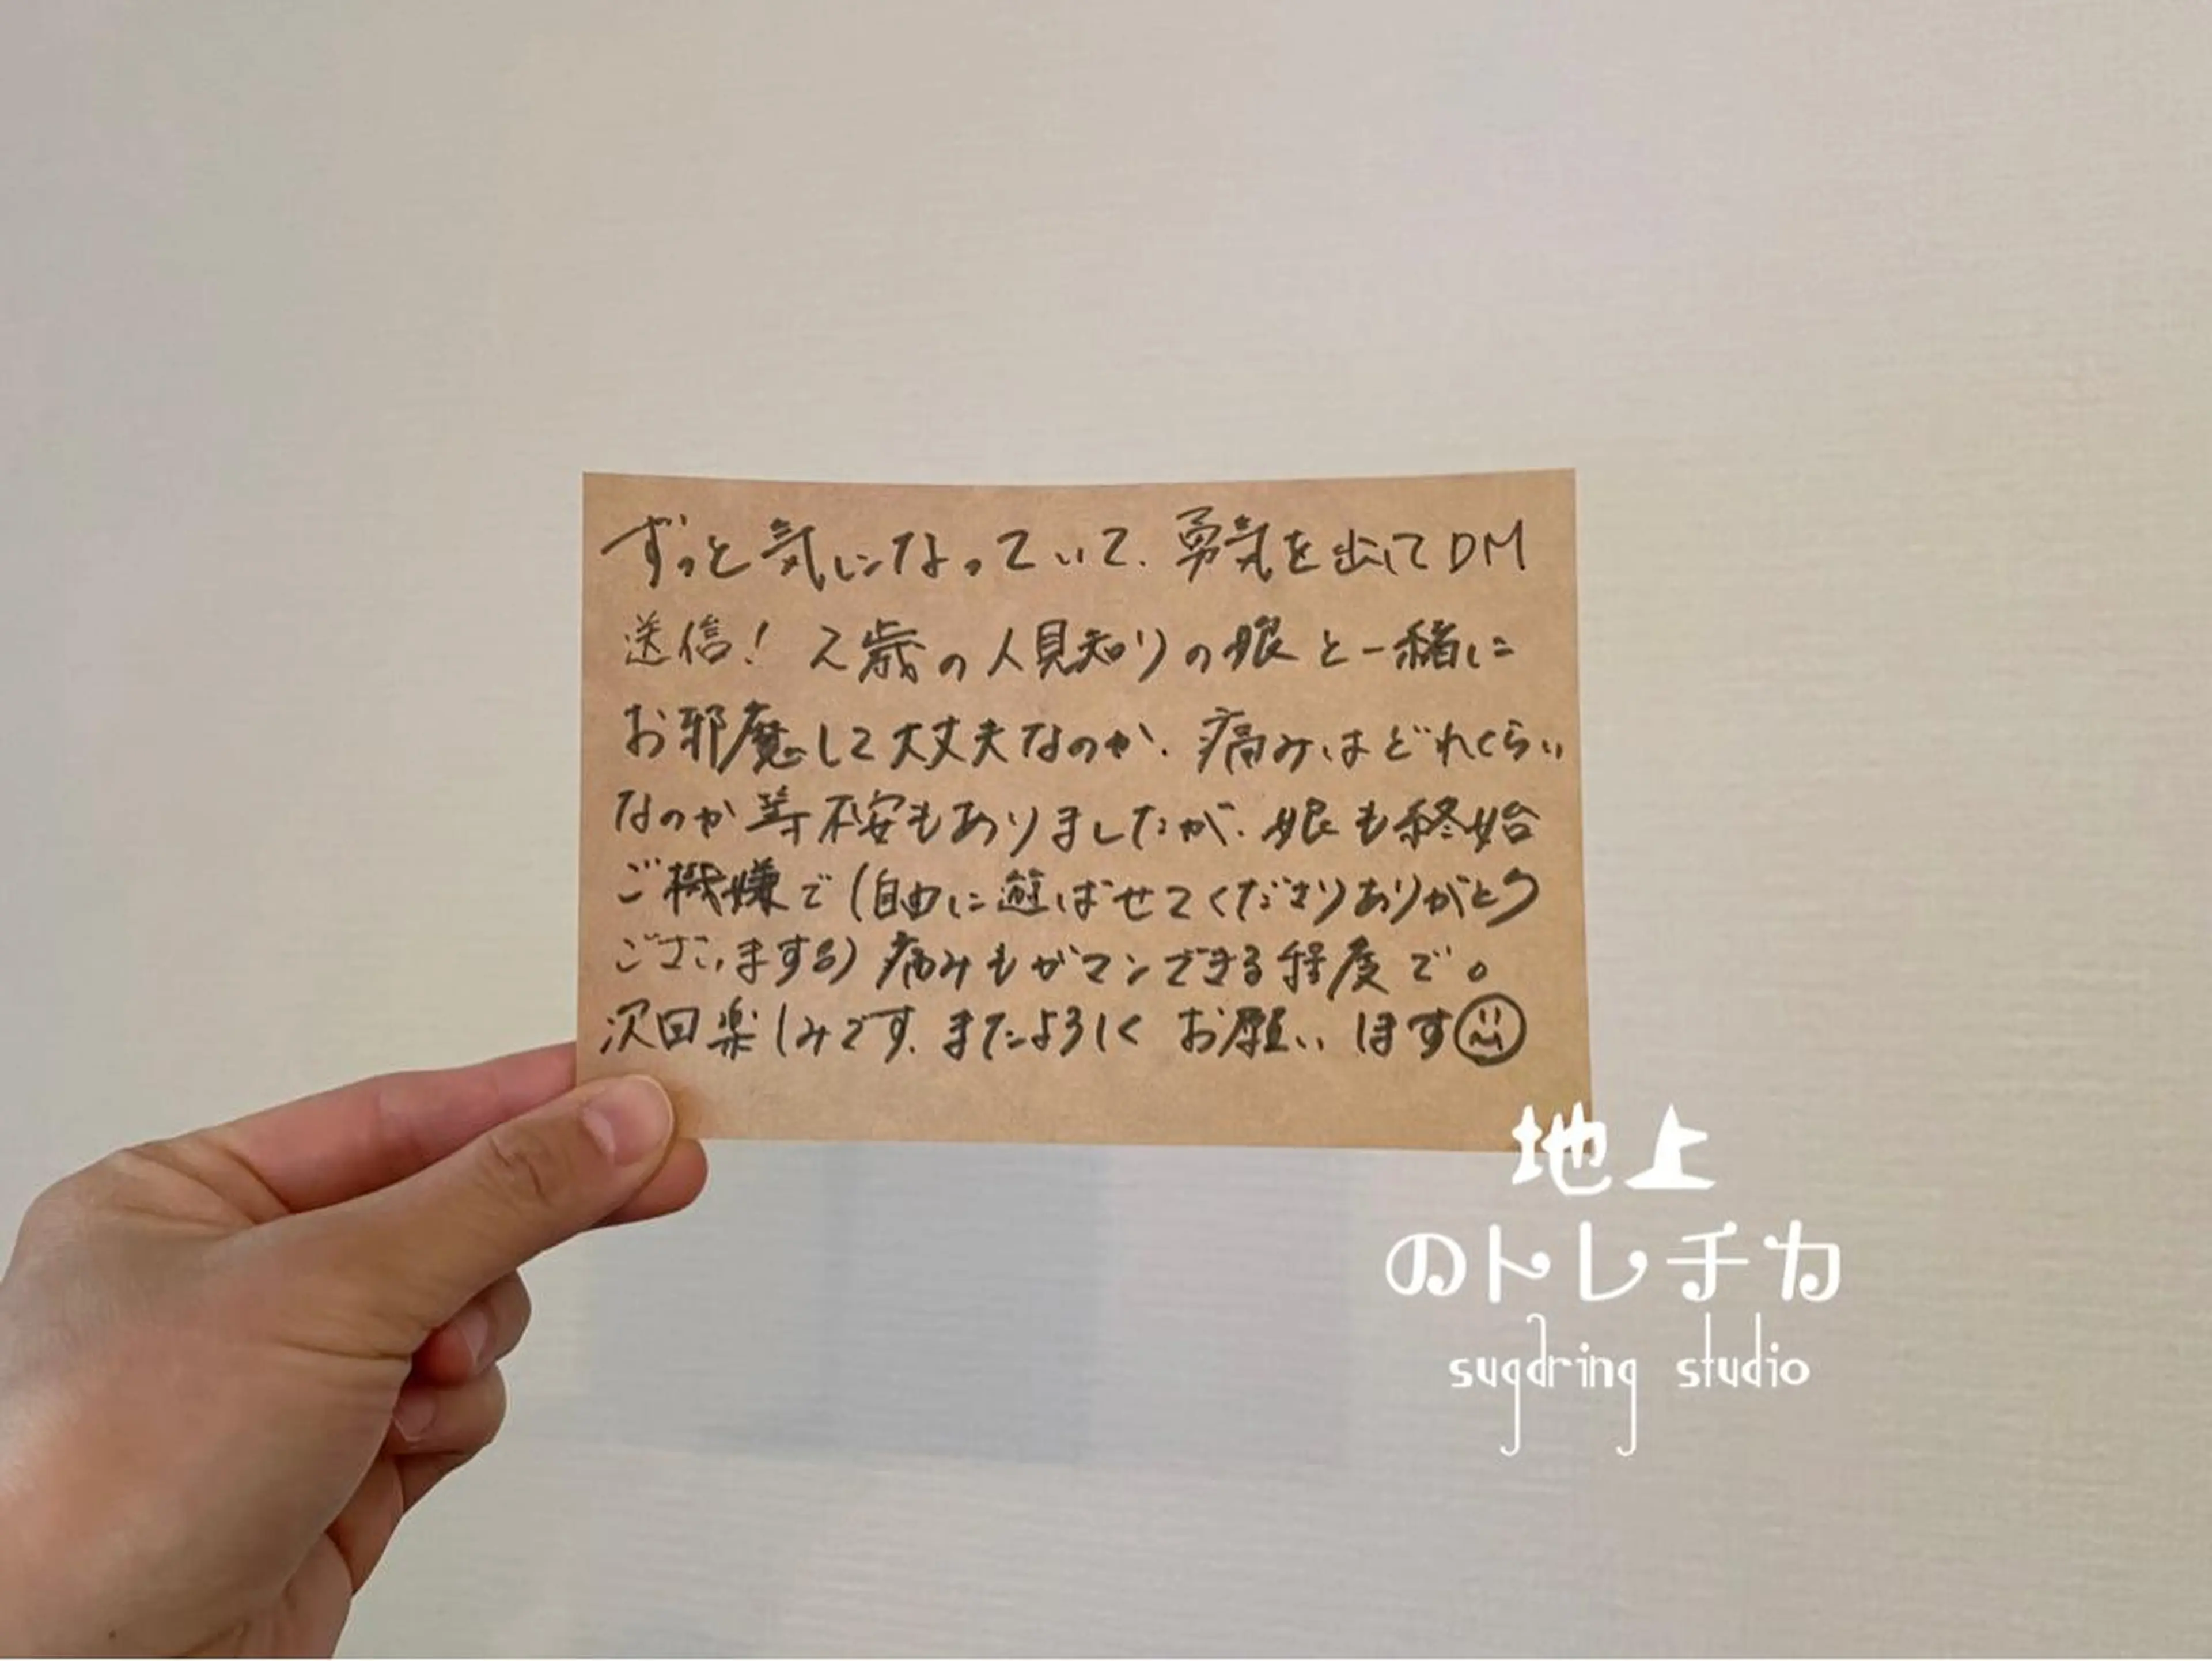 ずっと気になっていて、勇気を出してDM
送信! 2歳の人見知りの娘と一緒に
お邪魔して大丈夫なのか、痛みはどれくらい
なのか等不安もありましたが、娘も終始
ご機嫌で(自由に遊ばせてくださりありがとう
ございまする)痛みもガマンできる程度で。
次回楽しみです。またよろしくお願いします
地上
のトレチカ
sugdring studio